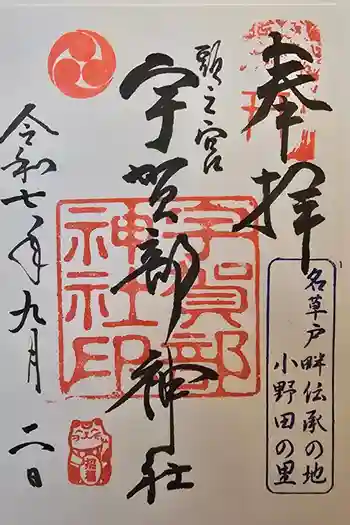 奉拝
名草戸畔伝承の地
小野田の里
頭之宮
宇賀部神社
宇賀部
神社印
令和七年九月二日
招福